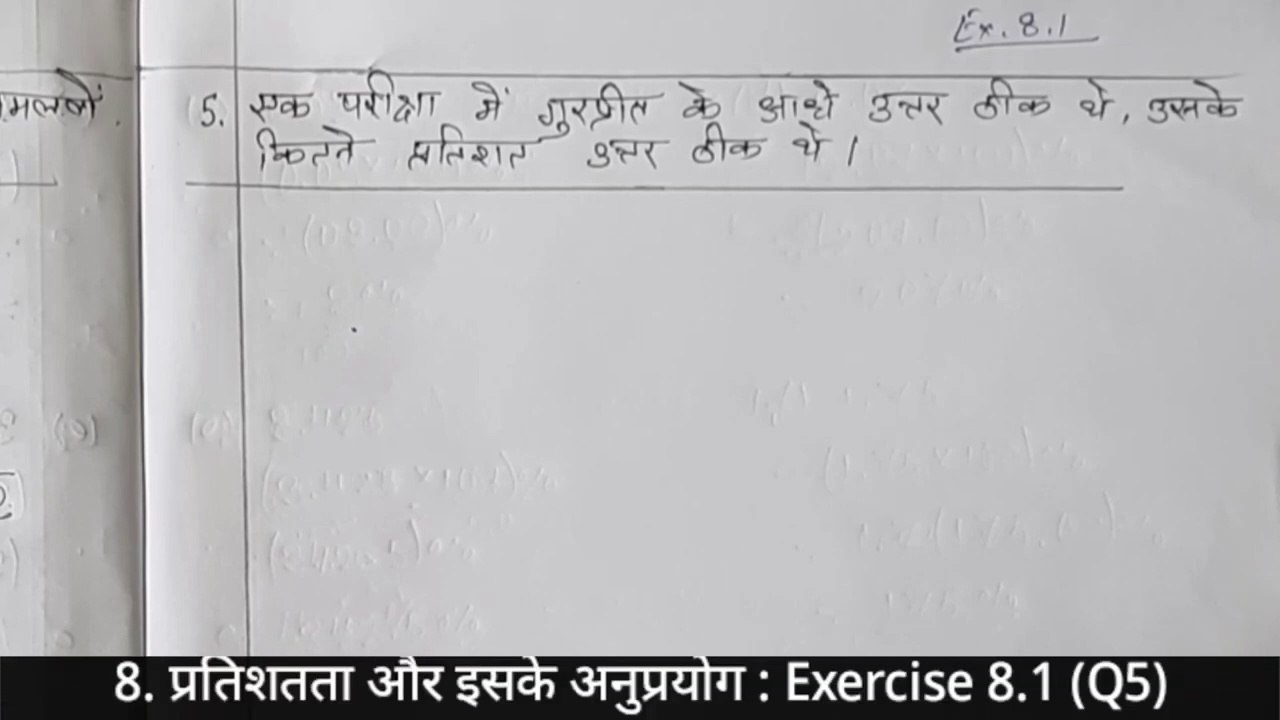 Ex. 8.1
मलबों.
5. एक परीक्षा में गुरप्रीत के आधे उत्तर ठीक थे, उसके
कितने प्रतिशत उत्तर ठीक थे।
8. प्रतिशतता और इसके अनुप्रयोग : Exercise 8.1 (Q5)